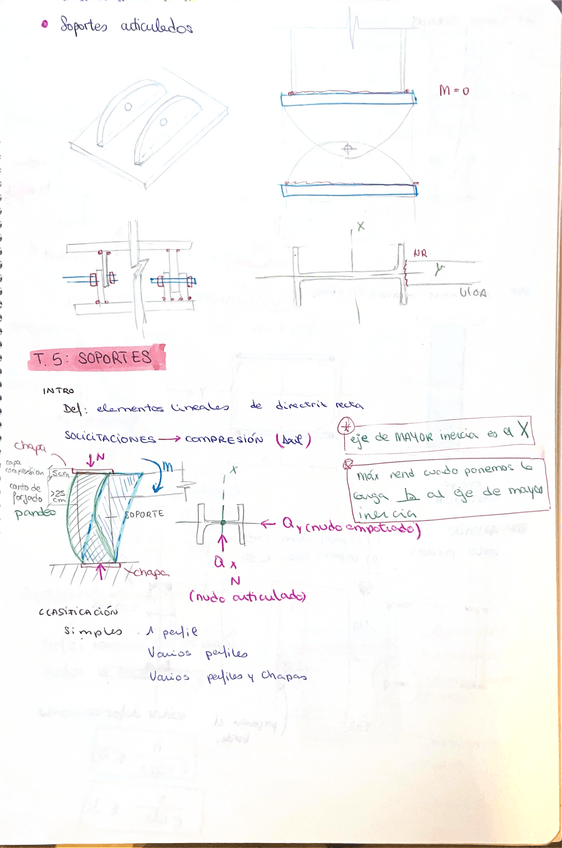 • Soportes articulados
M = 0
X
NR
y
VIGA
T. 5: SOPORTES
INTRO
Def: elementos lineales de directriz recta
SOLICITACIONES → COMPRESIÓN (axil)
* eje de MAYOR inercia es el X
* máx rend cuando ponemos la
carga ⊥ al eje de mayor
inercia
chapa
N
M
capa
compresión
5cm
canto de
forjado
>25
cm
pandeo
SOPORTE
chapa
X
← Qy (nudo empotrado)
Q x
N
(nudo articulado)
CLASIFICACIÓN
Simples . 1 perfil
Varios perfiles
Varios perfiles y chapas